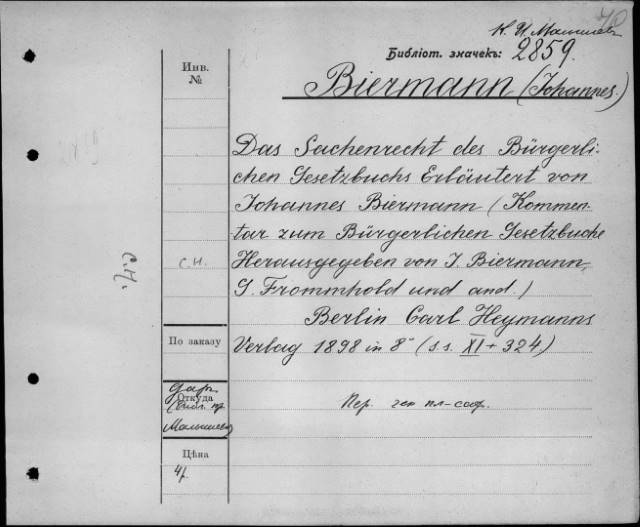 70
К. И. Малышев
Библіот. значекъ: 2859.
Инв.
№
Biermann (Johannes.)
Das Sachenrecht des Bürgerli-
chen Gesetzbuchs Erläutert von
Johannes Biermann (Kommen-
tar zum Bürgerlichen Gesetzbuche
Herausgegeben von J. Biermann,
G. Frommhold und and.)
Berlin Carl Heymanns
Verlag 1898 in 8° (s.s. XI + 324)
с.н.
С.Н.
По заказу
Даръ
Откуда
Малышева
Пер.
Цѣна
4р.